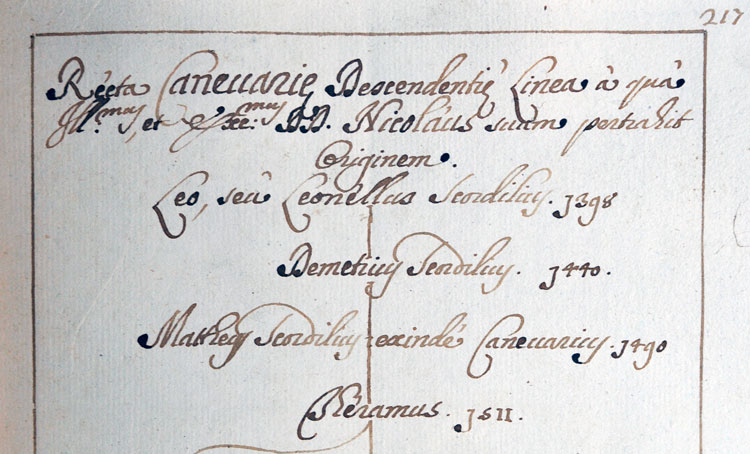 217
Recta Caneuarię Descendentię Linea à quâ
Ill.mus, et Exc:mus DD. Nicolâus suùm pertrahit
Originem.
Leo, seù Leonellus Scordilius. 1398
Demetrius Scordilius. 1440.
Matheus Scordilius exindè Caneuarius. 1490
Pheramus. 1511.